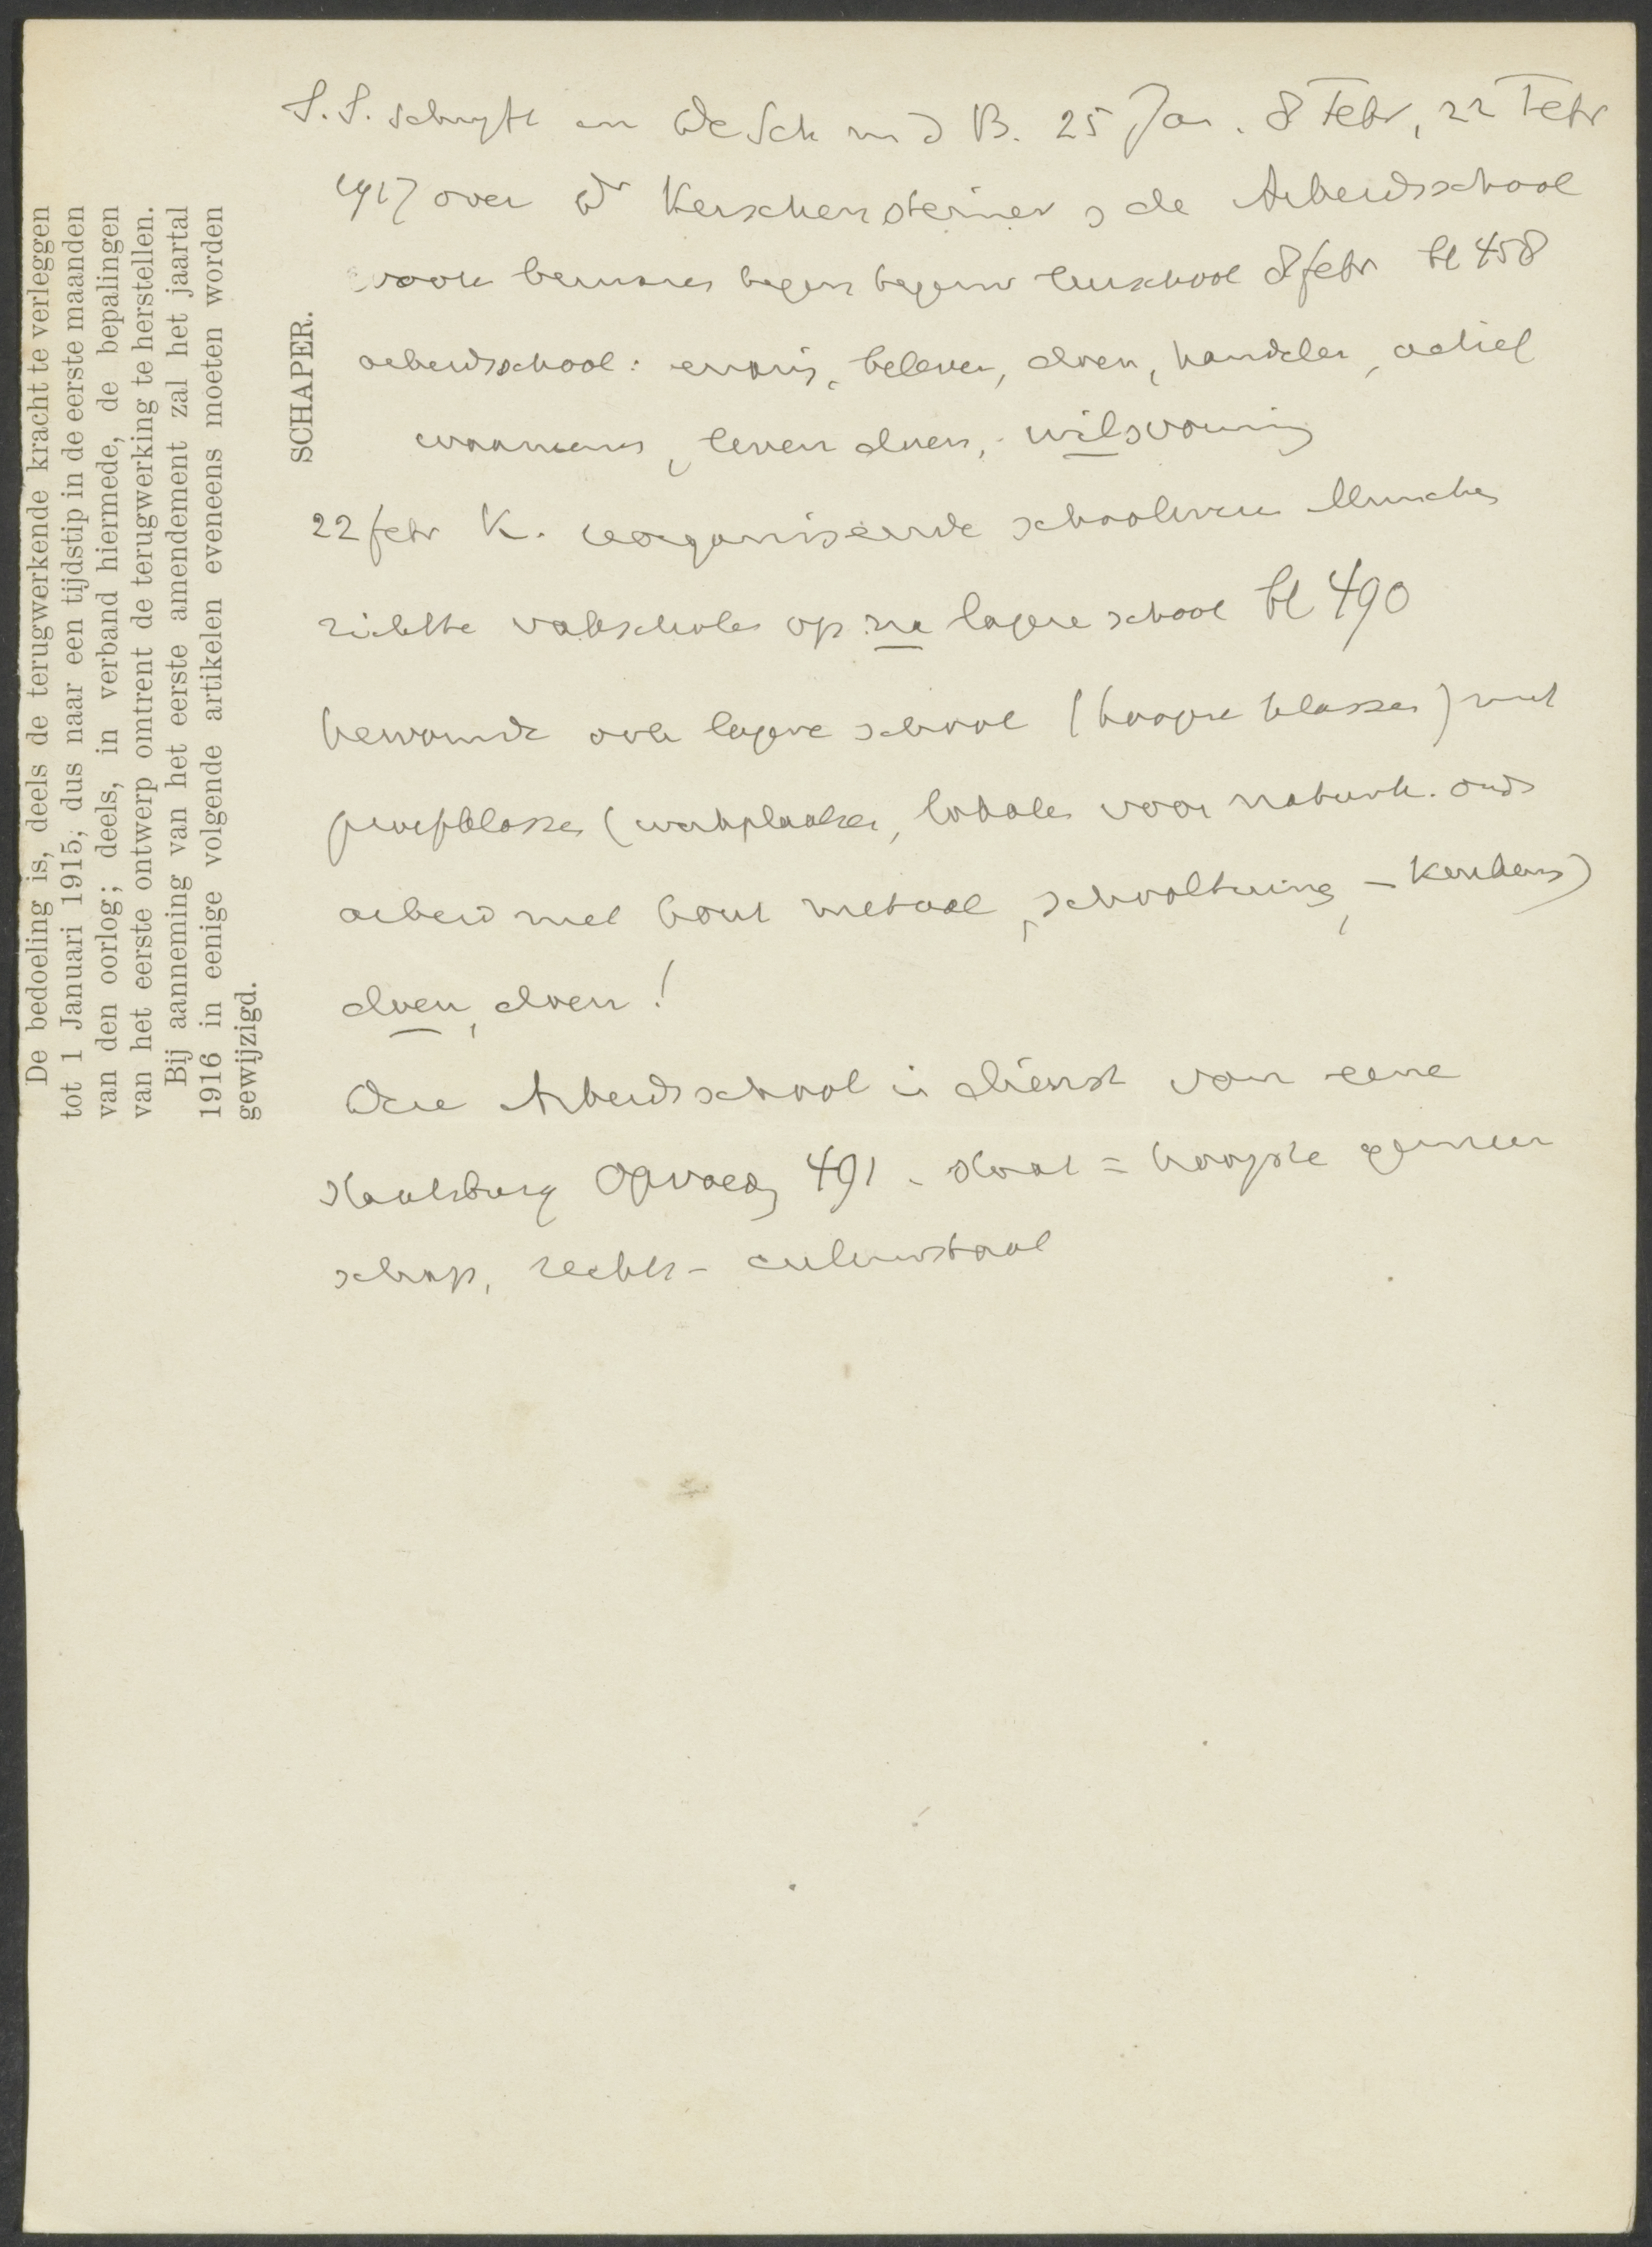 De bedoeling is, deels de terugwerkende kracht te verleggen
tot 1 Januari 1915, dus naar een tijdstip in de eerste maanden
van den oorlog; deels, in verband hiermede, de bepalingen
van het eerste ontwerp omtrent de terugwerking te herstellen.
Bij aanneming van het eerste amendement zal het jaartal
1916 in eenige volgende artikelen eveneens moeten worden
gewijzigd.
SCHAPER.
S.S. schrijft in De Sch m d B. 25 Jan. 8 Febr, 22 Febr
1917 over Dr Kerschensteiner & de Arbeidsschool
leerschool 8 febr bl 458
arbeidsschool: ervaring, beleven, doen, handelen, actief
leven doen, wilsvorming
22 febr K. reorganiseerde schoolwezen München
richtte vakscholen op na lagere school bl 490
ook lagere school (hoogere klassen) met
proefklassen (werkplaatsen, lokalen voor natuurk. ond
arbeid met hout metaal, schooltuin, - keukens)
doen, doen!
Deze Arbeidsschool in dienst van eene
Staatsburg Opvoedg 491. Staat = hoogste gemeen
schap, rechts- cultuurstaat